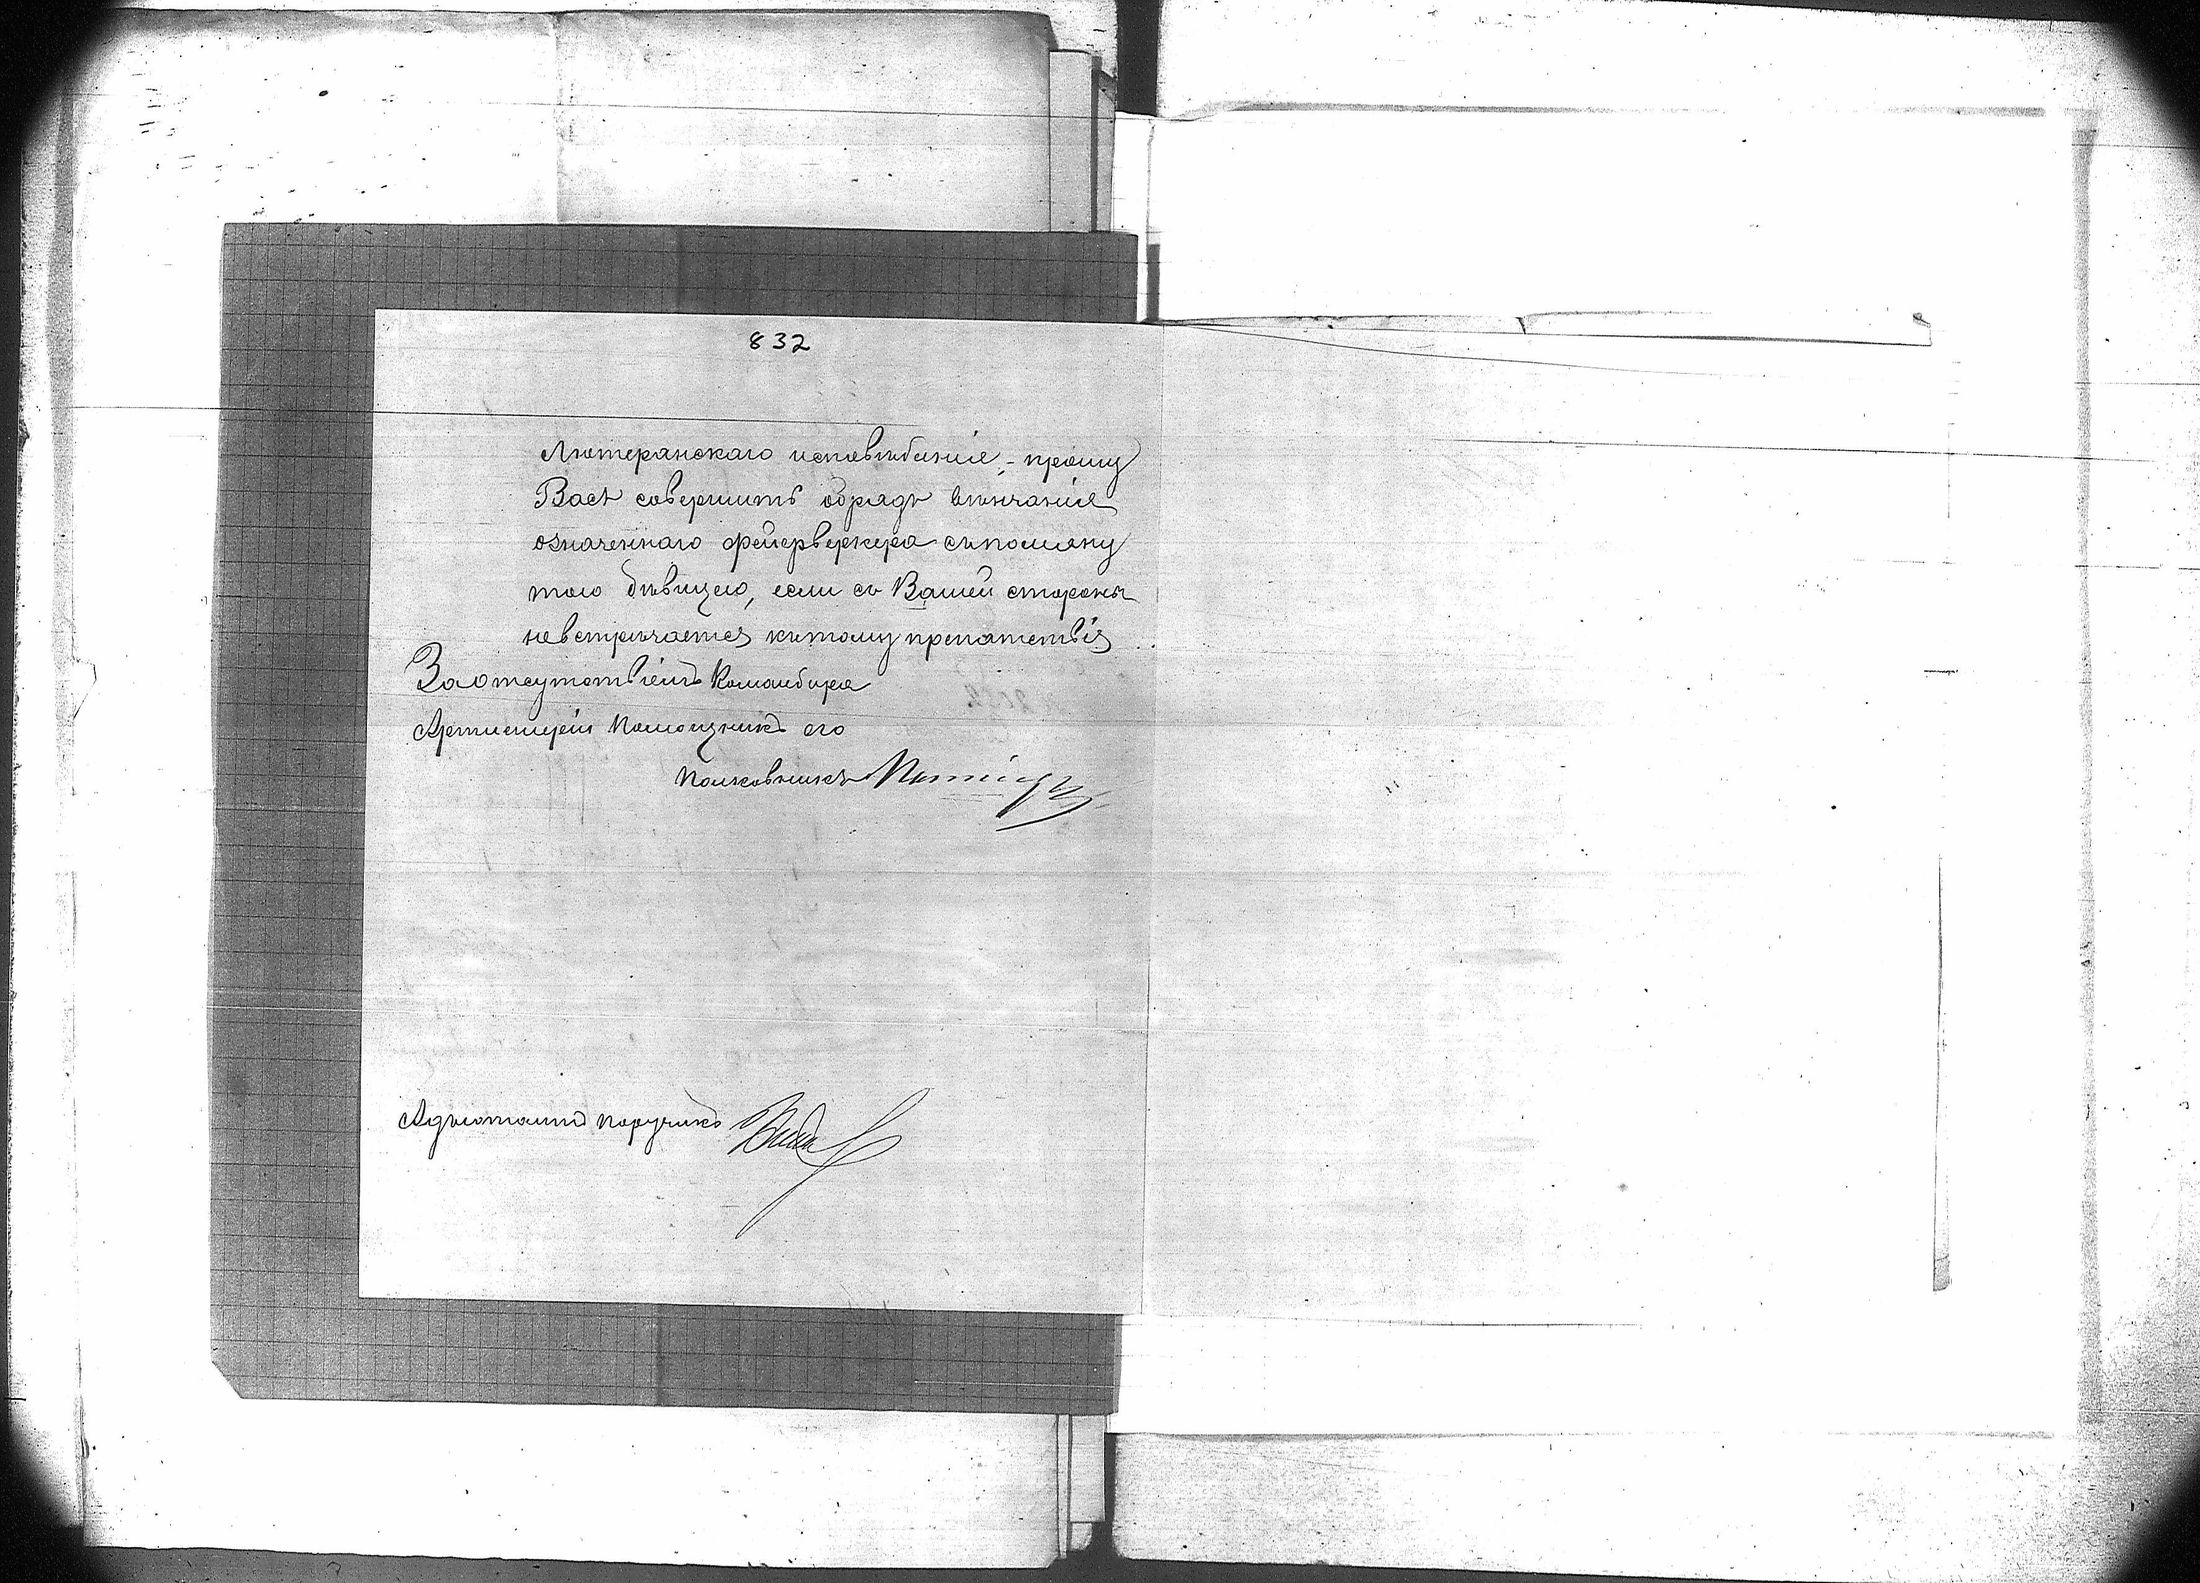 832
Лютеранскаго исповѣданія, - прошу
Васъ совершить обрядъ вѣнчанія
означеннаго фейерверкера съ помяну
тою дѣвицею, если съ Вашей стороны
невстрѣчается къ тому препятствія
За отсутствіемъ Командира
Артиллеріи Помощникъ его
Полковникъ
Адъютантъ Поручикъ